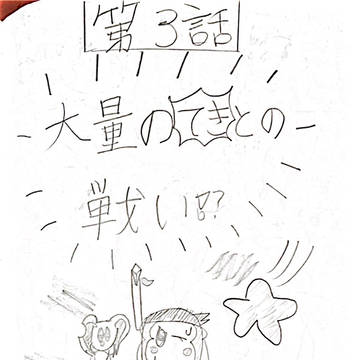 第3話
大量のてきとの
戦い!?